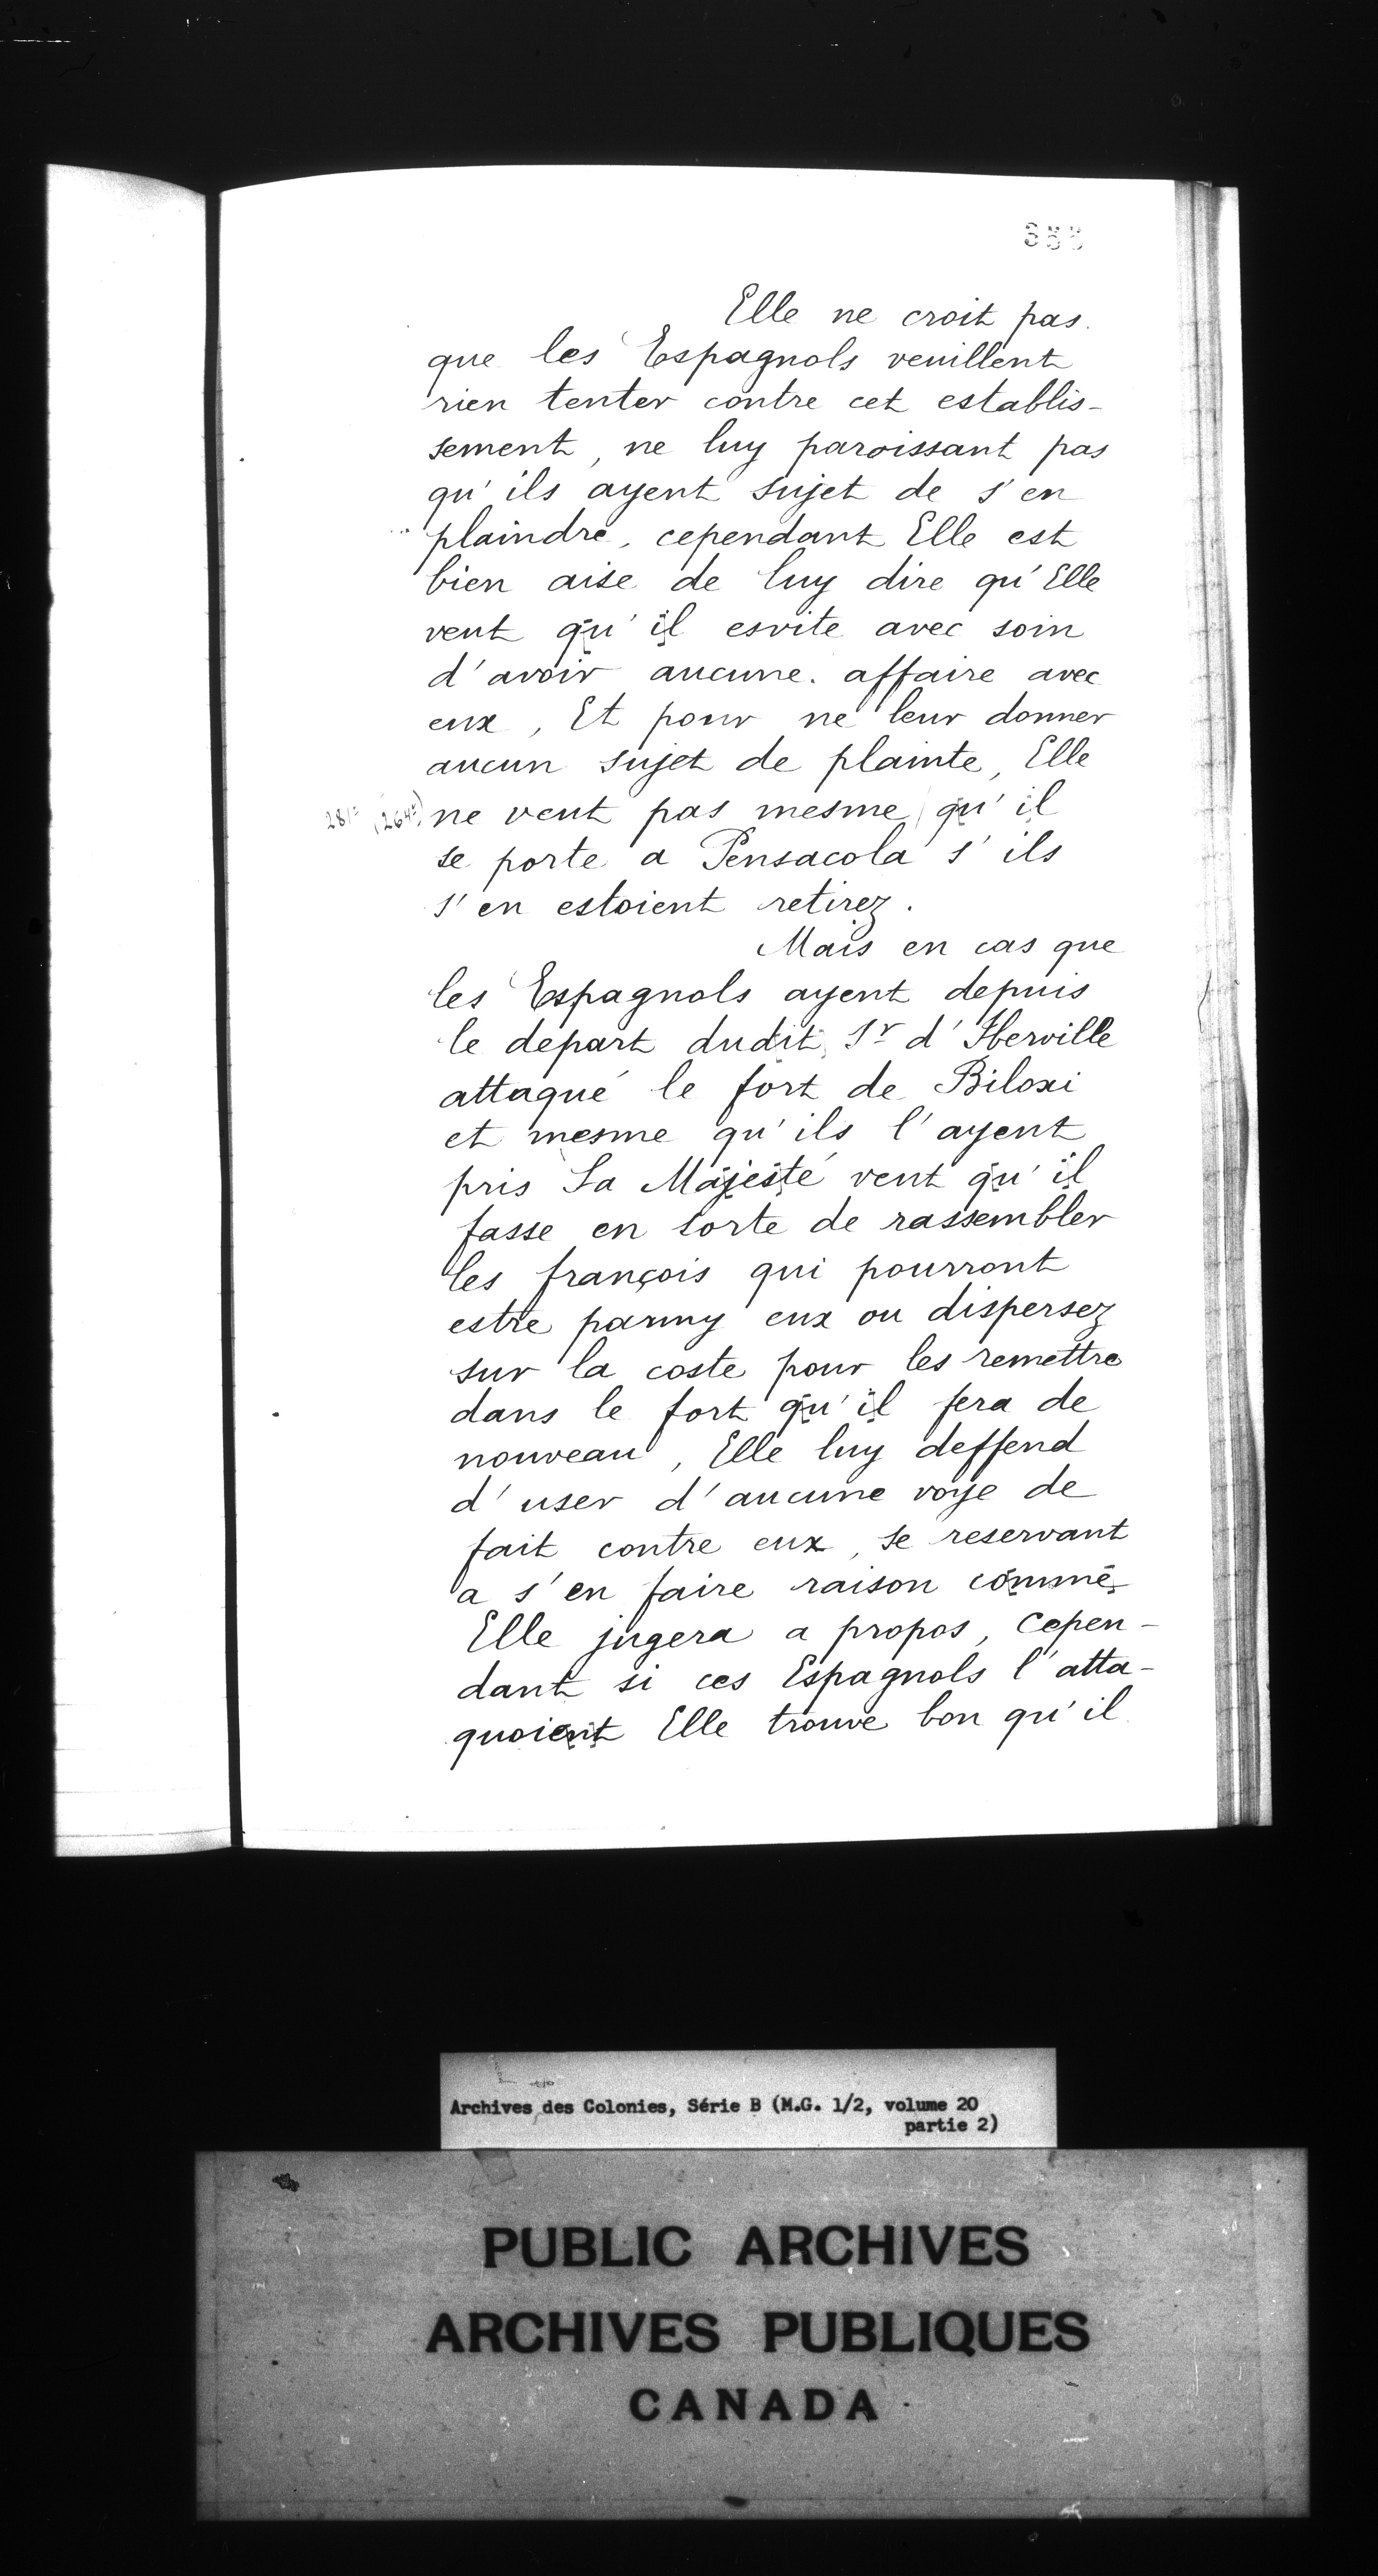 Elle ne croit pas
que les Espagnols veuillent
rien tenter contre cet establis-
sement, ne luy paroissant pas
qu'ils ayent sujet de s'en
plaindre, cependant Elle est
bien aise de luy dire qu'Elle
veut qu'il esvite avec soin
d'avoir aucune affaire avec
eux, Et pour ne leur donner
aucun sujet de plainte, Elle
(264) ne veut pas mesme qu'il
se porte a Pensacola s'ils
s'en estoient retirez.
Mais en cas que
les Espagnols ayent depuis
le depart dudit Sr d'Iberville
attaqué le fort de Biloxi
et mesme qu'ils l'ayent
pris Sa Majesté veut qu'il
fasse en sorte de rassembler
les françois qui pourront
estre parmy eux ou dispersez
sur la coste pour les remettre
dans le fort qu'il fera de
nouveau, Elle luy deffend
d'user d'aucune voye de
fait contre eux, se reservant
a s'en faire raison comme
Elle jugera a propos, Cepen-
dant si ces Espagnols l'atta-
quoient Elle trouve bon qu'il
Archives des Colonies, Série B (M.G. 1/2, volume 20
partie 2)
PUBLIC ARCHIVES
ARCHIVES PUBLIQUES
CANADA